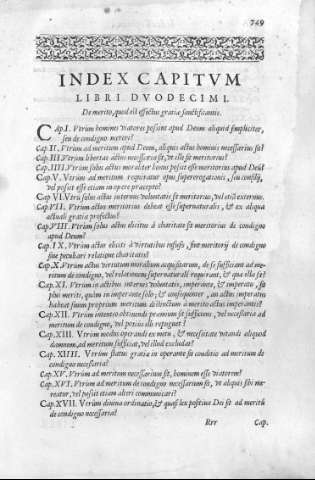 749
INDEX CAPITVM
LIBRI DVODECIMI.
De merito, quod est effectus gratiæ sanctificantis.
CAp. I. Vtrum homines viatores possint apud Deum aliquid simpliciter,
seu de condigno mereri?
Cap. II. Vtrum ad meritum apud Deum, aliquis actus hominis necessarius sit?
Cap. III. Vtrum libertas actus necessaria sit, vt ille sit meritorius?
Cap. IIII. Vtrum solus actus moraliter bonus possit esse meritorius apud Deũ?
Cap. V. Vtrum ad meritum requiratur opus supererogationis, seu consilij,
vel possit esse etiam in opere præcepto?
Cap. VI. Vtrũ solus actus internus voluntatis sit meritorius, vel etiã externus.
Cap. VII. Vtrum actus meritorius debeat esse supernaturalis, & ex aliqua
actuali gratia profectus?
Cap. VIII. Vtrum solus actus elicitus à charitate sit meritorius de condigno
apud Deum?
Cap. IX. Vtrum actus eliciti à virtutibus infusis, sint meritorij de condigno
sine peculiari relatione charitatis?
Cap. X. Vtrum actus virtutum moralium acquisitarum, de se sufficiant ad me-
ritum de condigno, vel relationem supernaturalẽ requirant, & quæ illa sit?
Cap. XI. Vtrum in actibus internis voluntatis, imperante, & imperato, sit
plus meriti, quàm in imperante solo: & consequenter, an actus imperatus
habeat suum proprium meritum distinctum à merito actus imperantis?
Cap. XII. Vtrum intentio obtinendi præmium sit sufficiens, vel necessaria ad
meritum de condigno, vel potius illi repugnet?
Cap. XIII. Vtrum modus operandi ex metu, & necessitate vitandi aliquod
damnum, ad meritum sufficiat, vel illud excludat?
Cap. XIIII. Vtrum status gratiæ in operante sit conditio ad meritum de
condigno necessaria?
Cap. XV. Vtrum ad meritum necessarium sit, hominem esse viatorem?
Cap. XVI. Vtrum ad meritum de condigno necessarium sit, vt aliquis sibi me-
reatur, vel possit etiam alteri communicari?
Cap. XVII. Vtrum diuina ordinatio, & quasi lex positiua Dei sit ad meritũ
de condigno necessaria?
Rrr Cap.